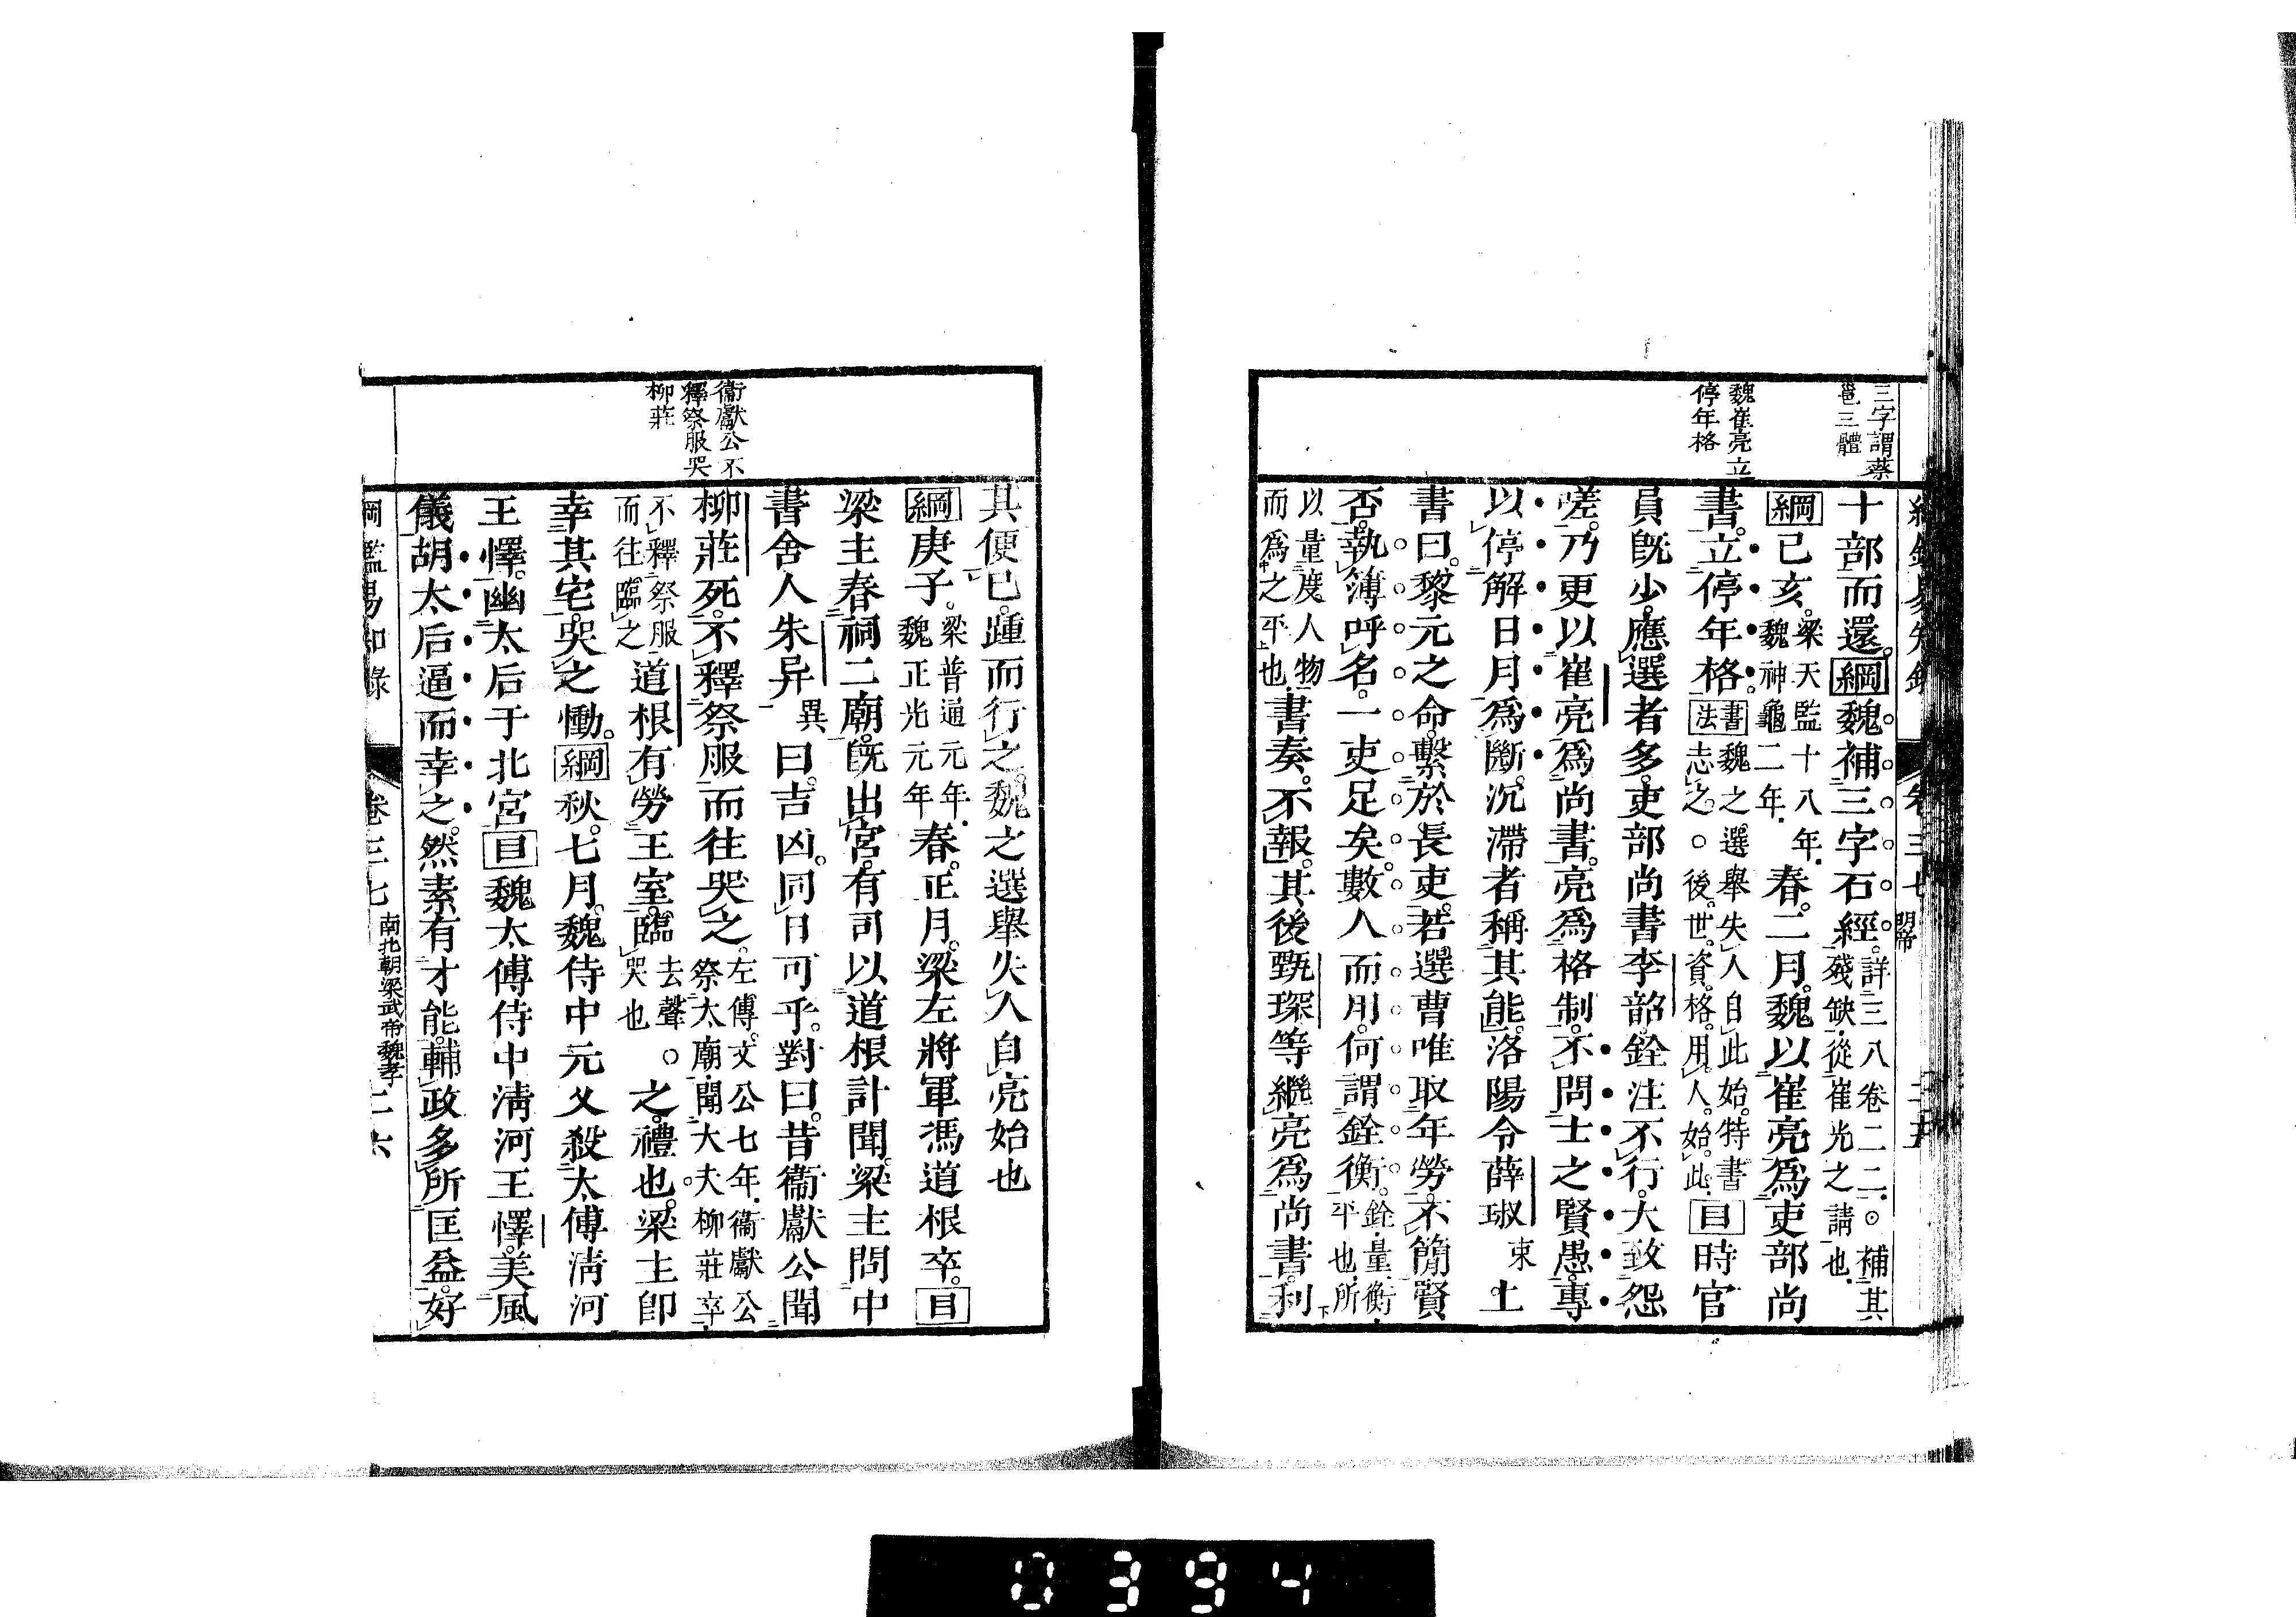 三字謂蔡
邕三體
魏崔亮立
停年格
十部而還。綱魏補三字石經。詳三八卷二二。○補其殘缺從崔光之請也。
綱己亥。梁天監十八年。魏神龜二年。春。二月。魏以崔亮爲吏部尚
書。立停年格。書法魏之選舉失人自此始。特書志之。○後世。資格。用人。始此。目時官
員既少。應選者多。吏部尚書李韶。銓注不行。大致怨
嗟。乃更以崔亮爲尚書。亮爲格制。不問士之賢愚。專
以停解日月爲斷。沉滯者稱其能。洛陽令薛琡束上
書曰。黎元之命。繫於長吏。若選曹唯取年勞。不簡賢
否。執簿呼名。一吏足矣。數人而用。何謂銓衡。銓。量。衡。平也。所
以量度人物而爲之平也。書奏。不報。其後甄琛等繼亮爲尚書。利
卷三七
衞獻公不
釋祭服哭
柳莊
其便已。踵而行之。魏之選舉失人自亮始也
綱庚子。梁普通元年。魏正光元年春。正月。梁左將軍馮道根卒。目
梁主春祠二廟。既出宮。有司以道根計聞。梁主問中
書舍人朱异異曰。吉凶。同日可乎。對曰。昔衞獻公聞
柳莊死。不釋祭服而往哭之。左傳。文公七年。衞獻公祭太廟。聞大夫柳莊卒。
不釋祭服而往臨之道根有勞王室。臨去聲哭也。○之。禮也。梁主即
幸其宅。哭之慟。綱秋。七月。魏侍中元乂殺太傅淸河
王懌。幽太后于北宮目魏太傅侍中淸河王懌。美風
儀。胡太后逼而幸之。然素有才能。輔政多所匡益。好
綱鑑易知錄 卷三七 南北朝梁武帝魏孝 二六
0394